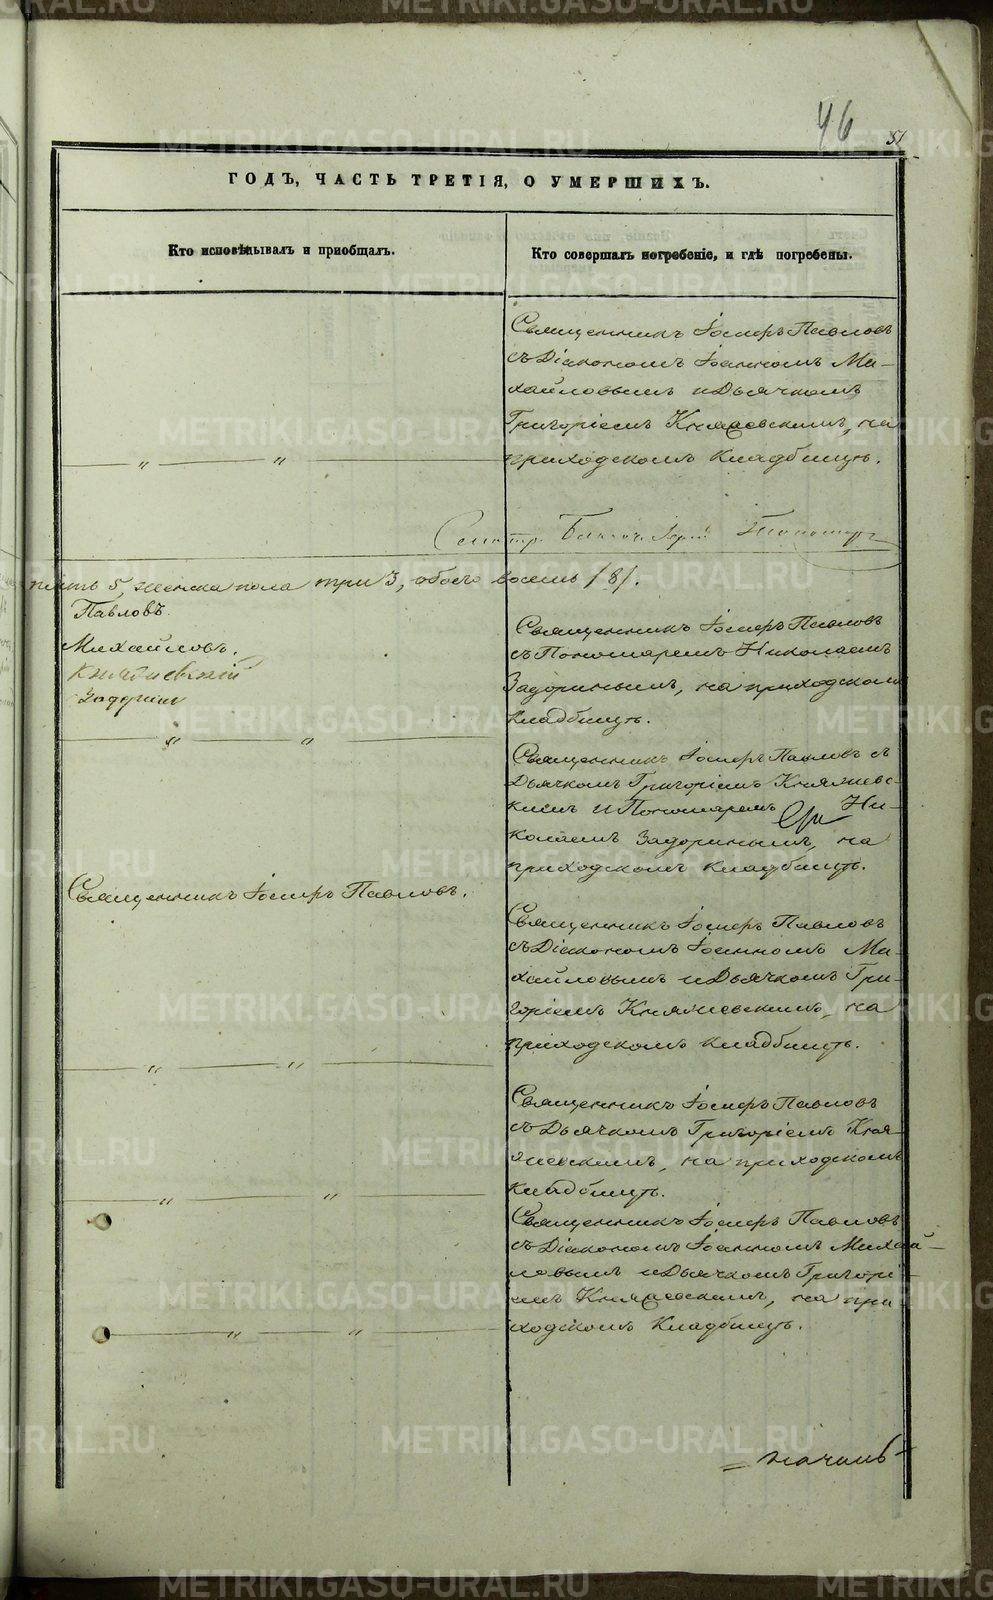 46
51
ГОДЪ, ЧАСТЬ ТРЕТІЯ, О УМЕРШИХЪ.
Кто исповѣдывалъ и пріобщалъ.
Кто совершалъ погребеніе, и гдѣ погребены.
Священникъ Іосифъ Павловъ
съ Діакономъ Іоанномъ Ми-
хайловымъ и Дьячкомъ
Григоріемъ Княжевскимъ, на
приходскомъ кладбищѣ.
пять 5, женска пола три 3, обоего восемь /8/.
Павловъ
Михайловъ.
Княжевскій
Задоринъ
Священникъ Іосифъ Павловъ
съ Пономаремъ Николаемъ
Задоринымъ, на приходскомъ
кладбищѣ.
Священникъ Іосифъ Павловъ съ
Дьячкомъ Григоріемъ Княжевс-
кимъ и Пономаремъ Ни-
колаемъ Задоринымъ, на
приходскомъ кладбищѣ.
Священникъ Іосифъ Павловъ.
Священникъ Іосифъ Павловъ
съ Діакономъ Іоанномъ Ми-
хайловымъ и Дьячкомъ Гри-
горіемъ Княжевскимъ, на
приходскомъ кладбищѣ.
Священникъ Іосифъ Павловъ
съ Дьячкомъ Григоріемъ Кня-
жевскимъ, на приходскомъ
кладбищѣ.
Священникъ Іосифъ Павловъ
съ Діакономъ Іоанномъ Михай-
ловымъ и Дьячкомъ Григорі-
емъ Княжевскимъ, на при-
ходскомъ кладбищѣ.
METRIKI.GASO-URAL.RU